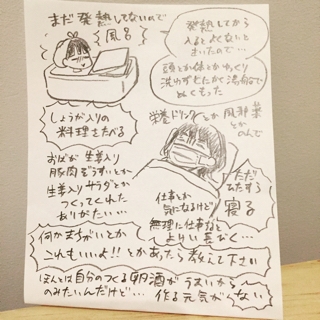 まだ発熱してないので
風呂
発熱してから
入るとよくないと
きいたので…
頭とか体とかゆっくり
洗わずとにかく湯船で
ぬくもった
しょうが入りの
料理をたべる
おばが生姜入り
豚肉ぞうすいとか
生姜入りサラダとか
つくってくれた
ありがたい…
栄養ドリンクとか風邪薬
とか
のんで
ただ
ひたすら
寝る
仕事とか
気になるけど
無理に仕事すると
より長びく…
何かまちがいとか
これもいいよ!!とかあったら教えて下さい
ほんとは自分のつくる卵酒がうまいから
のみたいんだけど…作る元気がない